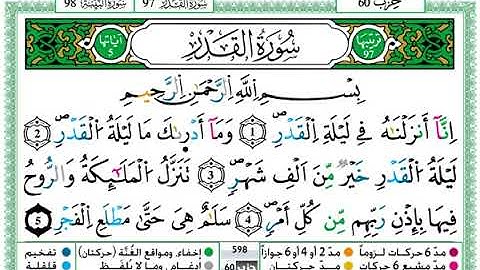 سُورَةُ البَيِّنَة 98 سُورَةُ القَدْر 97 حِزْب 60
آيَاتُهَا 5 سُورَةُ الْقَدْرِ تَرْتِيبُهَا 97
بِسْمِ اللَّهِ الرَّحْمَٰنِ الرَّحِيمِ
اِنَّآ أَنزَلْنَٰهُ فِے لَيْلَةِ اِ۬لْقَدْرِۖ 1 وَمَآ أَدْر۪ىٰكَ مَا لَيْلَةُ اُ۬لْقَدْرِۖ 2
لَيْلَةُ اُ۬لْقَدْرِ خَيْرٌ مِّنَ اَلْفِ شَهْرٖۖ 3 تَنَزَّلُ اُ۬لْمَلَٰٓئِكَةُ وَالرُّوحُ
فِيهَا بِإِذْنِ رَبِّهِم مِّن كُلِّ أَمْرٖۖ 4 سَلَٰمٌ هِيَ حَتَّىٰ مَطْلَعِ اِ۬لْفَجْرِ 5
مدّ 6 حركات لزوماً مدّ 2 أو 4 أو 6 جوازاً 598 إخفاء، ومواقع الغُنَّة (حركتان) تفخيم
مدّ مشبع 6 حركات مدّ حركتان 60 إدغام، وما لا يُلفَظ قلقلة